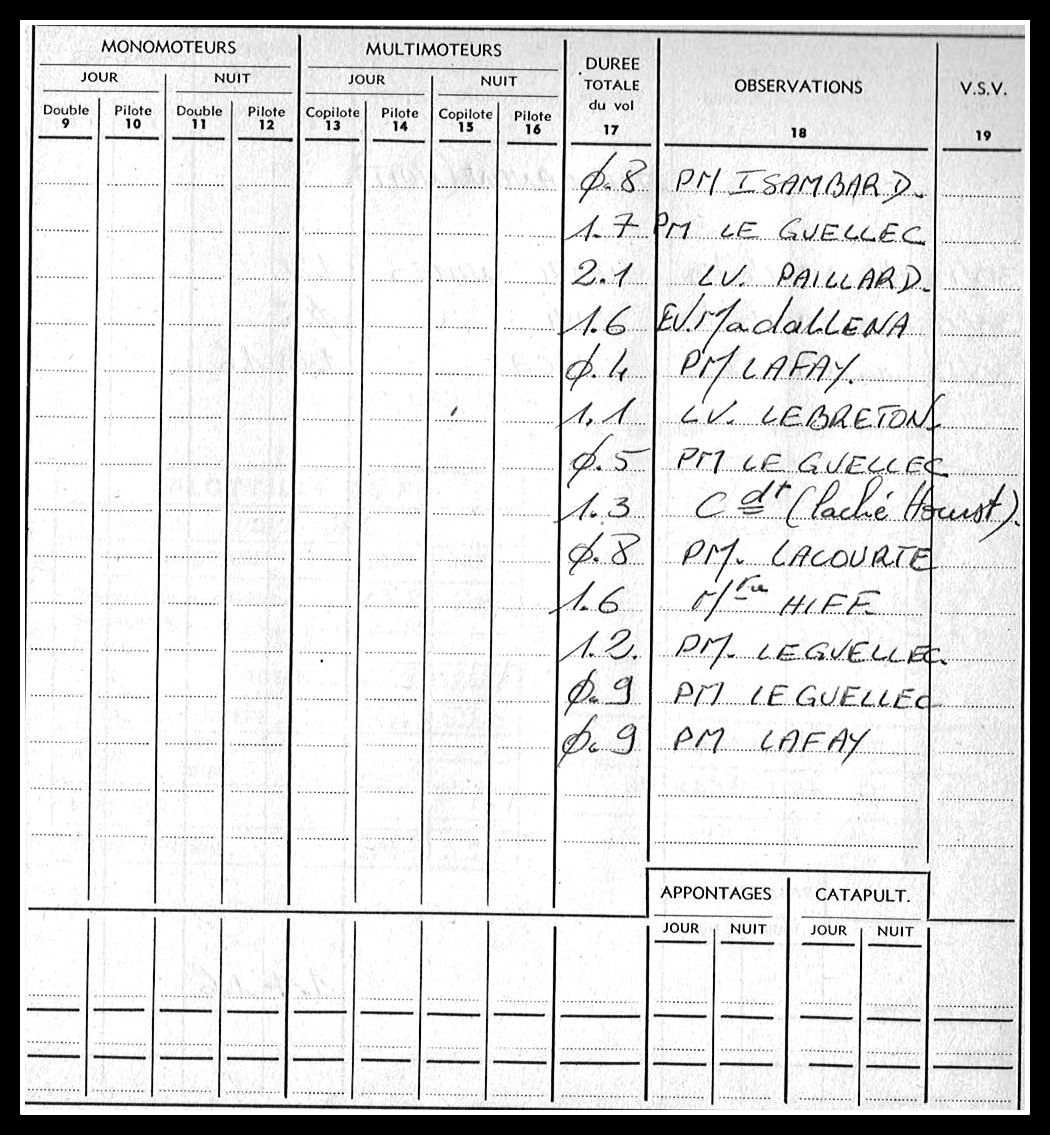 MONOMOTEURS MULTIMOTEURS DUREE TOTALE du vol OBSERVATIONS V.S.V.
JOUR NUIT JOUR NUIT
Double Pilote Double Pilote Copilote Pilote Copilote Pilote
9 10 11 12 13 14 15 16 17 18 19
Ø.8 PM ISAMBARD.
1.7 PM LE GUELLEC
2.1 LV. PAILLARD.
1.6 EV. MadalLENA
Ø.4 PM LAFAY.
1.1 LV. LEBRETON.
Ø.5 PM LE GUELLEC
1.3 Cdt (laché Hourst).
Ø.8 PM. LACOURTE
1.6 HIFF.
1.2. PM. LEGUELLEC.
Ø.9 PM LEGUELLEC
Ø.9 PM LAFAY
APPONTAGES CATAPULT.
JOUR NUIT JOUR NUIT